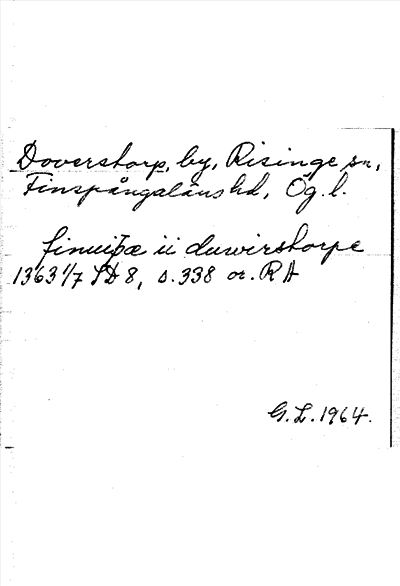 Doverstorp, by, Risinge sn,
Finspångaläns hd, Ög. l.
i duwirstorpe
1363 1/7 SD 8, s. 338 or. RA
G. L. 1964.